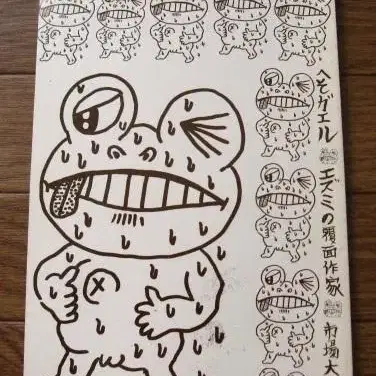 へそガエル エズミの覆面作家 市場大